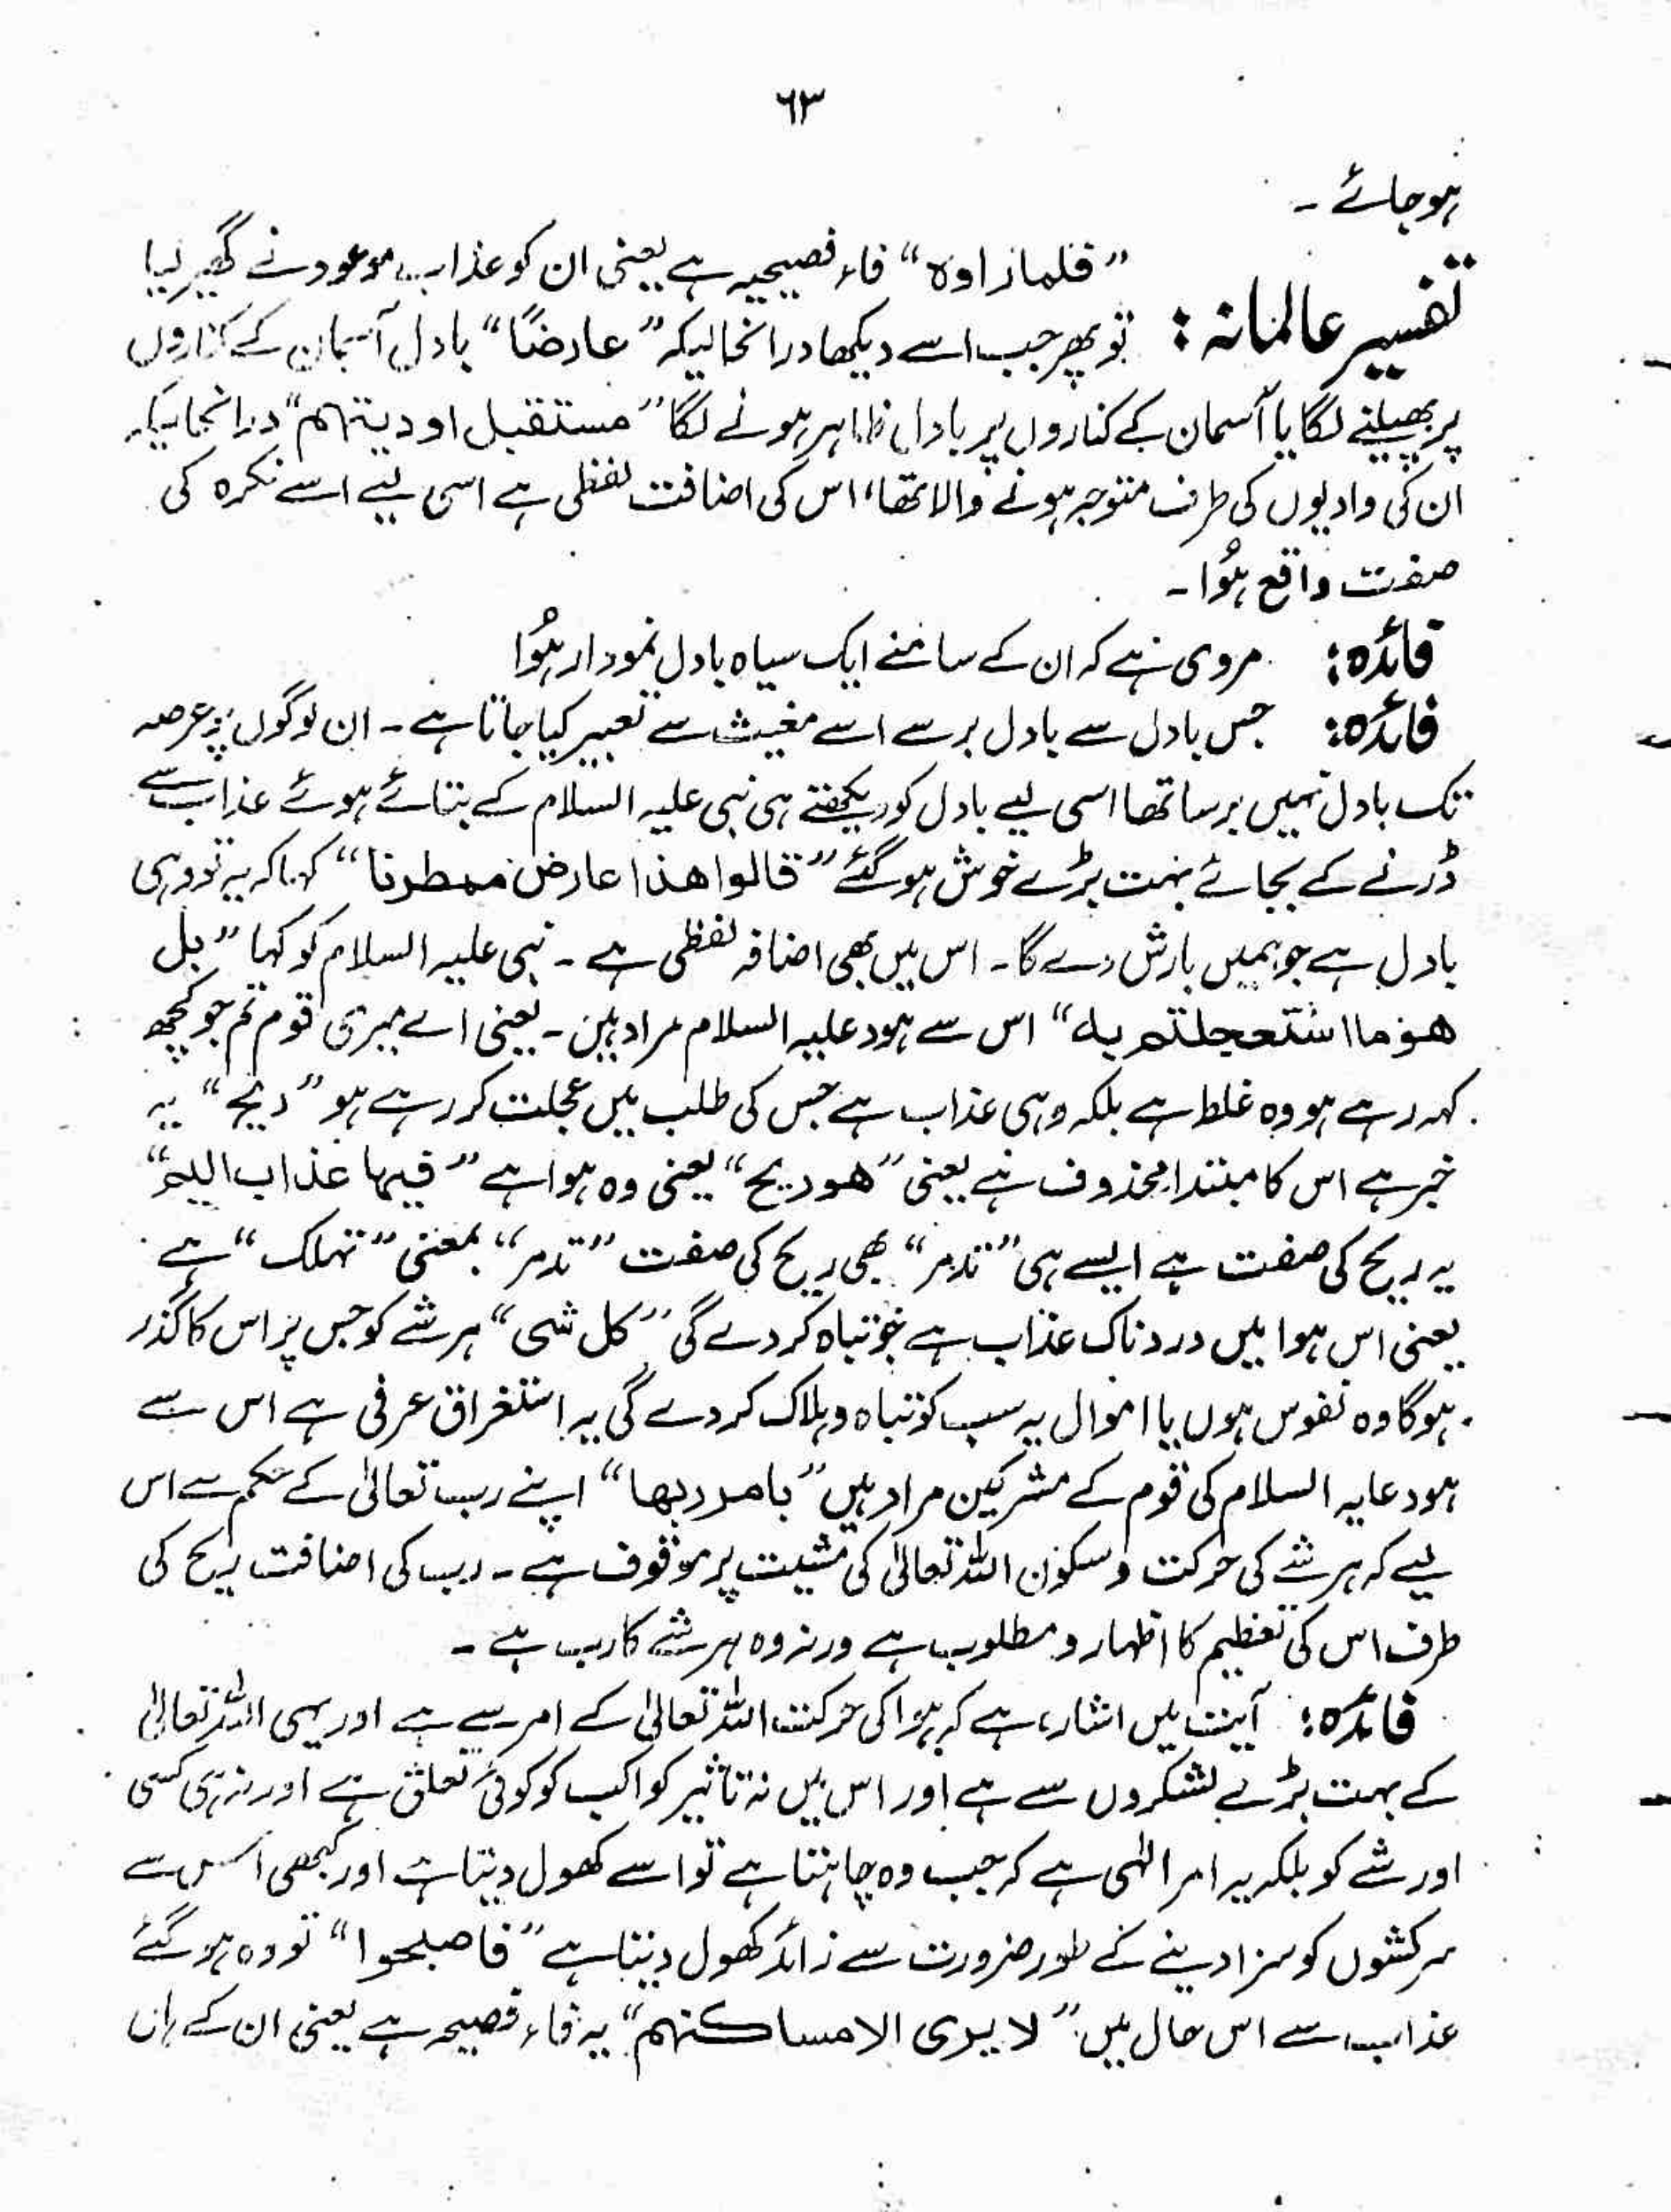 ٦٣
ہوجائے ۔
”فلماراوہ“ فاء فصیحیہ ہے یعنی ان کو عذاب موعود نے گھیر لیا
تفسیر عالمانہ : تو پھر جب اسے دیکھا درانحالیکہ ”عارضًا“ بادل آسمان کے کناروں
پر پھیلنے لگا یا آسمان کے کناروں پر بادل ظاہر ہونے لگا ”مستقبل اودیتہم“ درانحالیکہ
ان کی وادیوں کی طرف متوجہ ہونے والا تھا، اس کی اضافت لفظی ہے اسی لیے اسے نکرہ کی
صفت واقع ہُوا ۔
فائدہ : مروی ہے کہ ان کے سامنے ایک سیاہ بادل نمودار ہُوا
فائدہ : جس بادل سے بادل برسے اسے مغیث سے تعبیر کیا جاتا ہے ۔ ان لوگوں پر عرصہ
تک بادل نہیں برسا تھا اسی لیے بادل کو دیکھتے ہی نبی علیہ السلام کے بتائے ہوئے عذاب سے
ڈرنے کے بجائے بہت بڑے خوش ہو گئے ”قالوا ھذا عارض ممطرنا“ کہا کہ یہ تو وہی
بادل ہے جو ہمیں بارش دے گا ۔ اس میں بھی اضافہ لفظی ہے ۔ نبی علیہ السلام کو کہا ”بل
ھو ما استعجلتم بہ“ اس سے ہود علیہ السلام مراد ہیں ۔ یعنی اے میری قوم تم جو کچھ
کہہ رہے ہو وہ غلط ہے بلکہ وہی عذاب ہے جس کی طلب میں عجلت کر رہے ہو ”ریح“ یہ
خبر ہے اس کا مبتدا محذوف ہے یعنی ”ھو ریح“ یعنی وہ ہوا ہے ”فیہا عذاب الیم“
یہ ریح کی صفت ہے ایسے ہی ”تدمر“ بھی ریح کی صفت ”تدمر“ بمعنی ”تہلک“ ہے
یعنی اس ہوا میں دردناک عذاب ہے جو تباہ کر دے گی ”کل شی“ ہر شے کو جس پر اس کا گذر
ہوگا وہ نفوس ہوں یا اموال یہ سب کو تباہ و ہلاک کر دے گی یہ استغراق عرفی ہے اس سے
ہود علیہ السلام کی قوم کے مشرکین مراد ہیں ”بامر ربھا“ اپنے رب تعالیٰ کے حکم سے اس
لیے کہ ہر شے کی حرکت و سکون اللہ تعالیٰ کی مشیت پر موقوف ہے ۔ رب کی اضافت ریح کی
طرف اس کی تعظیم کا اظہار و مطلوب ہے ورنہ وہ ہر شے کا رب ہے ۔
فائدہ : آیت میں اشارہ ہے کہ ہوا کی حرکت اللہ تعالیٰ کے امر سے ہے اور یہی اللہ تعالیٰ
کے بہت بڑے لشکروں سے ہے اور اس میں نہ تاثیر کواکب کو کوئی تعلق ہے اور نہ ہی کسی
اور شے کو بلکہ یہ امر الٰہی ہے کہ جب وہ چاہتا ہے تو اسے کھول دیتا ہے اور کبھی اسے
سرکشوں کو سزا دینے کے طور ضرورت سے زائد کھول دیتا ہے ”فاصبحوا“ تو وہ ہو گئے
عذاب سے اس حال میں ”لا یری الا مساکنہم“ یہ فاء فصیحہ ہے یعنی ان کے ہاں